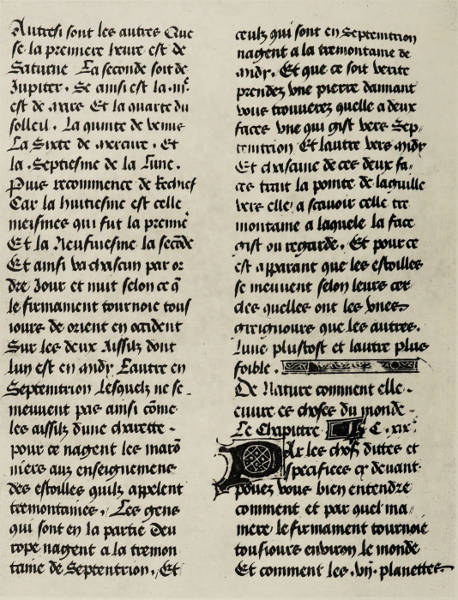 Autresi sont les autres Que
se la premiere heure est de
Saturne La seconde soit de
Jupiter. Se ainsi est la iije
est de mars Et la quarte du
solleil. La quinte de venus
La Sixte de mercure. Et
la. Septiesme de la Lune.
Puis recommence de rechief
Car la huitiesme est celle
meismes qui fut la premie
Et la Neufuiesme la secōde
Et ainsi va chascun par or
dre Jour et nuit selon ce q̄
le firmament tournoie tous
iours de orient en occident
Sur les deux Aissilz dont
lun est en midy Lautre en
Septemtrion Lesquelz ne se
meuuent pas ainsi cōme
les aissilz dune charette.
pour ce nagent les maro
niers aux enseignemens
des estoilles quilz appelent
tremontaines. Les gens
qui sont en la partie Deu
rope nagent a la tremon
taine de Septentrion. Et
ceulz qui sont en Septemtrion
nagent a la tremontaine de
midy. Et que ce soit verite
prendez vne pierre daimant
vous trouuerez quelle a deux
faces vne qui gist vers Sep
temtrion Et lautre vers midy
Et chascune de ces deux fa
ces trait la pointe de laguille
vers elle a scauoir celle tre
montaine a laquele la face
gist ou regarde. Et pour ce
est apparant que les estoilles
se meuuent selon leurs cer
cles quelles ont les vnes
greigneurs que les autres.
lune plustost et lautre plus
foible.
De Nature comment elle
euure es choses du monde
Le Chapittre C. xix.
Par les choses dittes et
specifiees cy deuant
pouez vous bien entendre
comment et par quel ma
niere le firmament tournoie
tousiours enuiron le monde
Et comment les. vij. planettes.